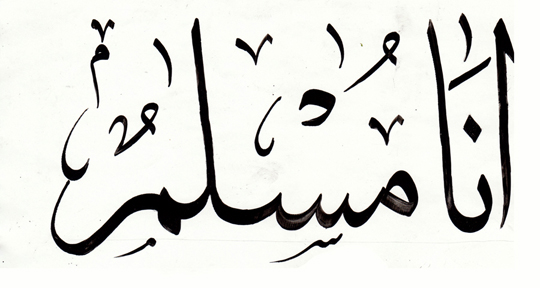 انَا مُسْلِمٌ